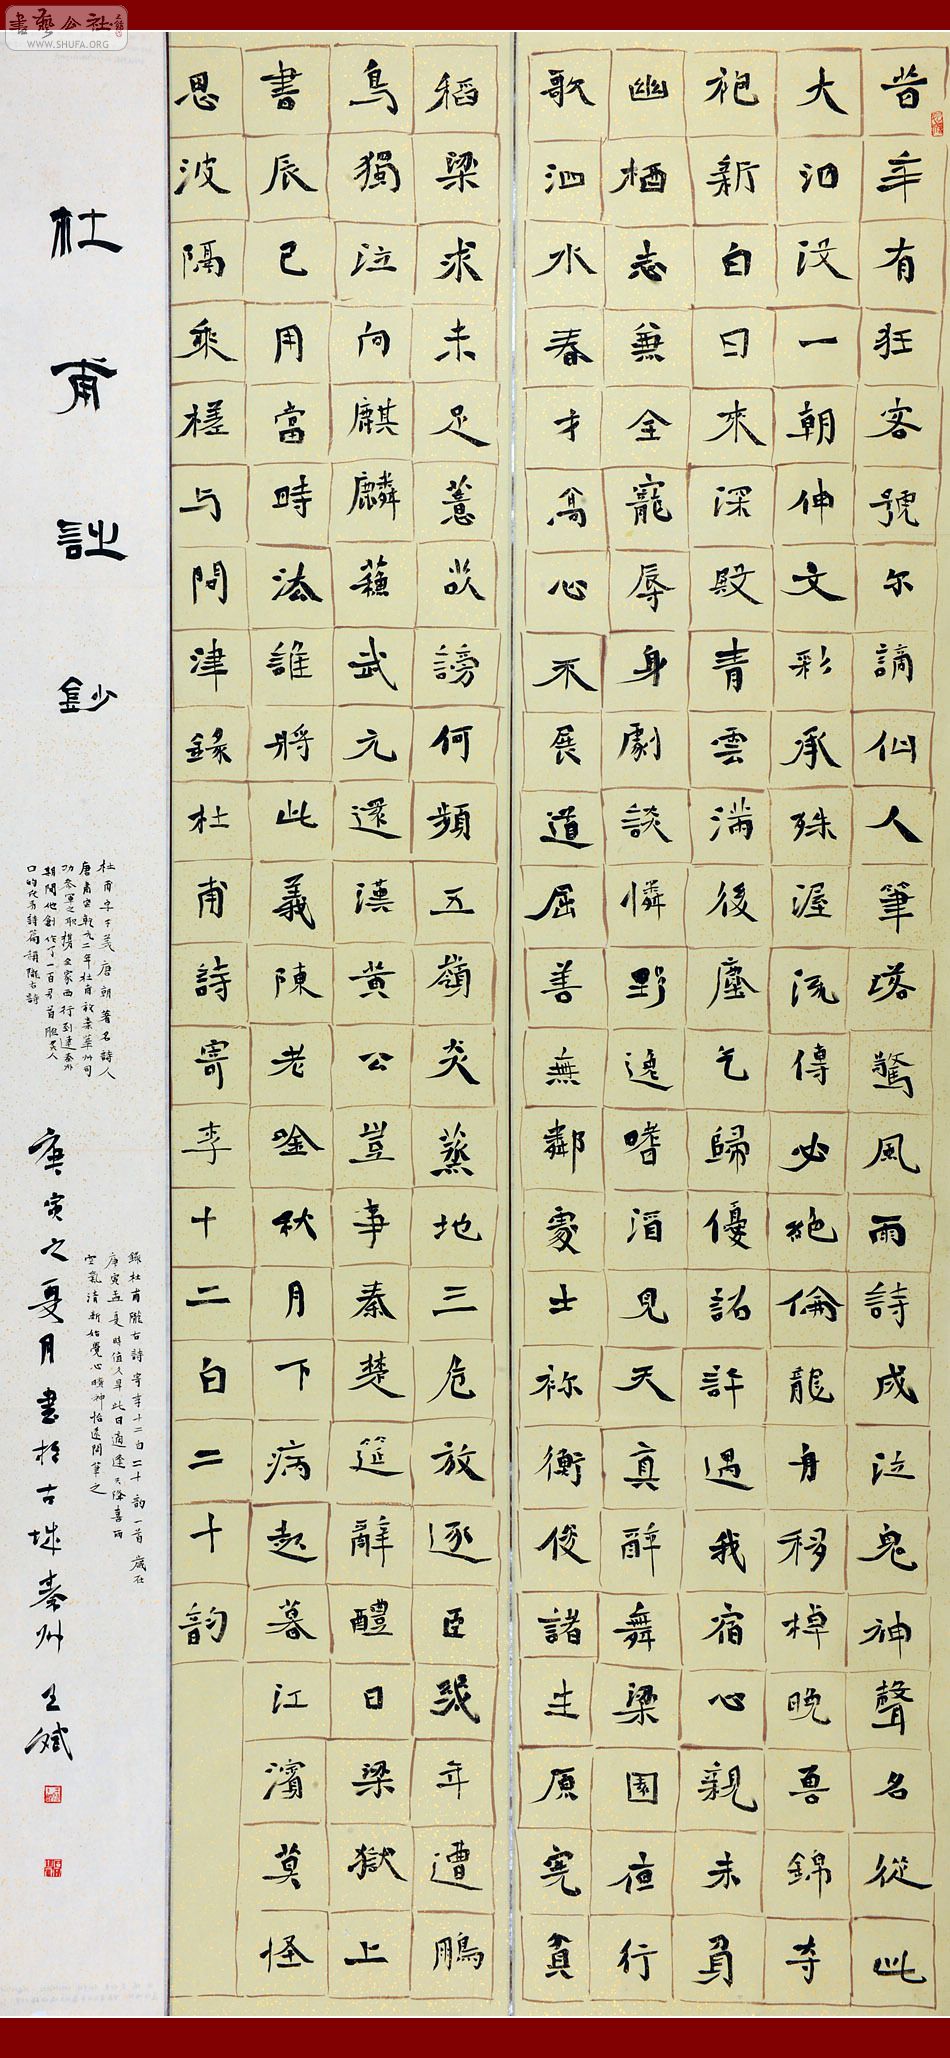 昔年有狂客號尔謫仙人筆落驚風雨詩成泣鬼神聲名從此
大汩没一朝伸文彩承殊渥流傳必絶倫龍舟移棹晚兽錦夺
袍新白日來深殿青雲满後塵乞歸優詔許遇我宿心親未負
幽栖志兼全寵辱身劇談憐野逸嗜酒見天真醉舞梁園夜行
歌泗水春才高心不展道屈善無鄰處士祢衡俊諸生原憲貧
稻粱求未足薏苡謗何頻五嶺炎蒸地三危放逐臣幾年遭鵩
鳥獨泣向麒麟蘇武元還漢黄公豈事秦楚筵辭醴日梁獄上
書辰已用當時法誰將此義陳老吟秋月下病起暮江濱莫怪
恩波隔乘槎与問津錄杜甫詩寄李十二白二十韵
杜甫詩鈔
杜甫字子美唐朝著名詩人
唐肅宗乾元二年杜甫辞棄華州司
功参軍之职携全家西行到達秦州
期間他創作了一百多首膾炙人
口的优秀詩篇稱隴右詩
錄杜甫隴右詩寄李十二白二十韵一首歲在
庚寅孟夏時值久旱此日適逢天降喜雨
空氣清新始覺心曠神怡遂開筆之
庚寅之夏月書於古城秦州王斌
書藝公社
WWW.SHUFA.ORG